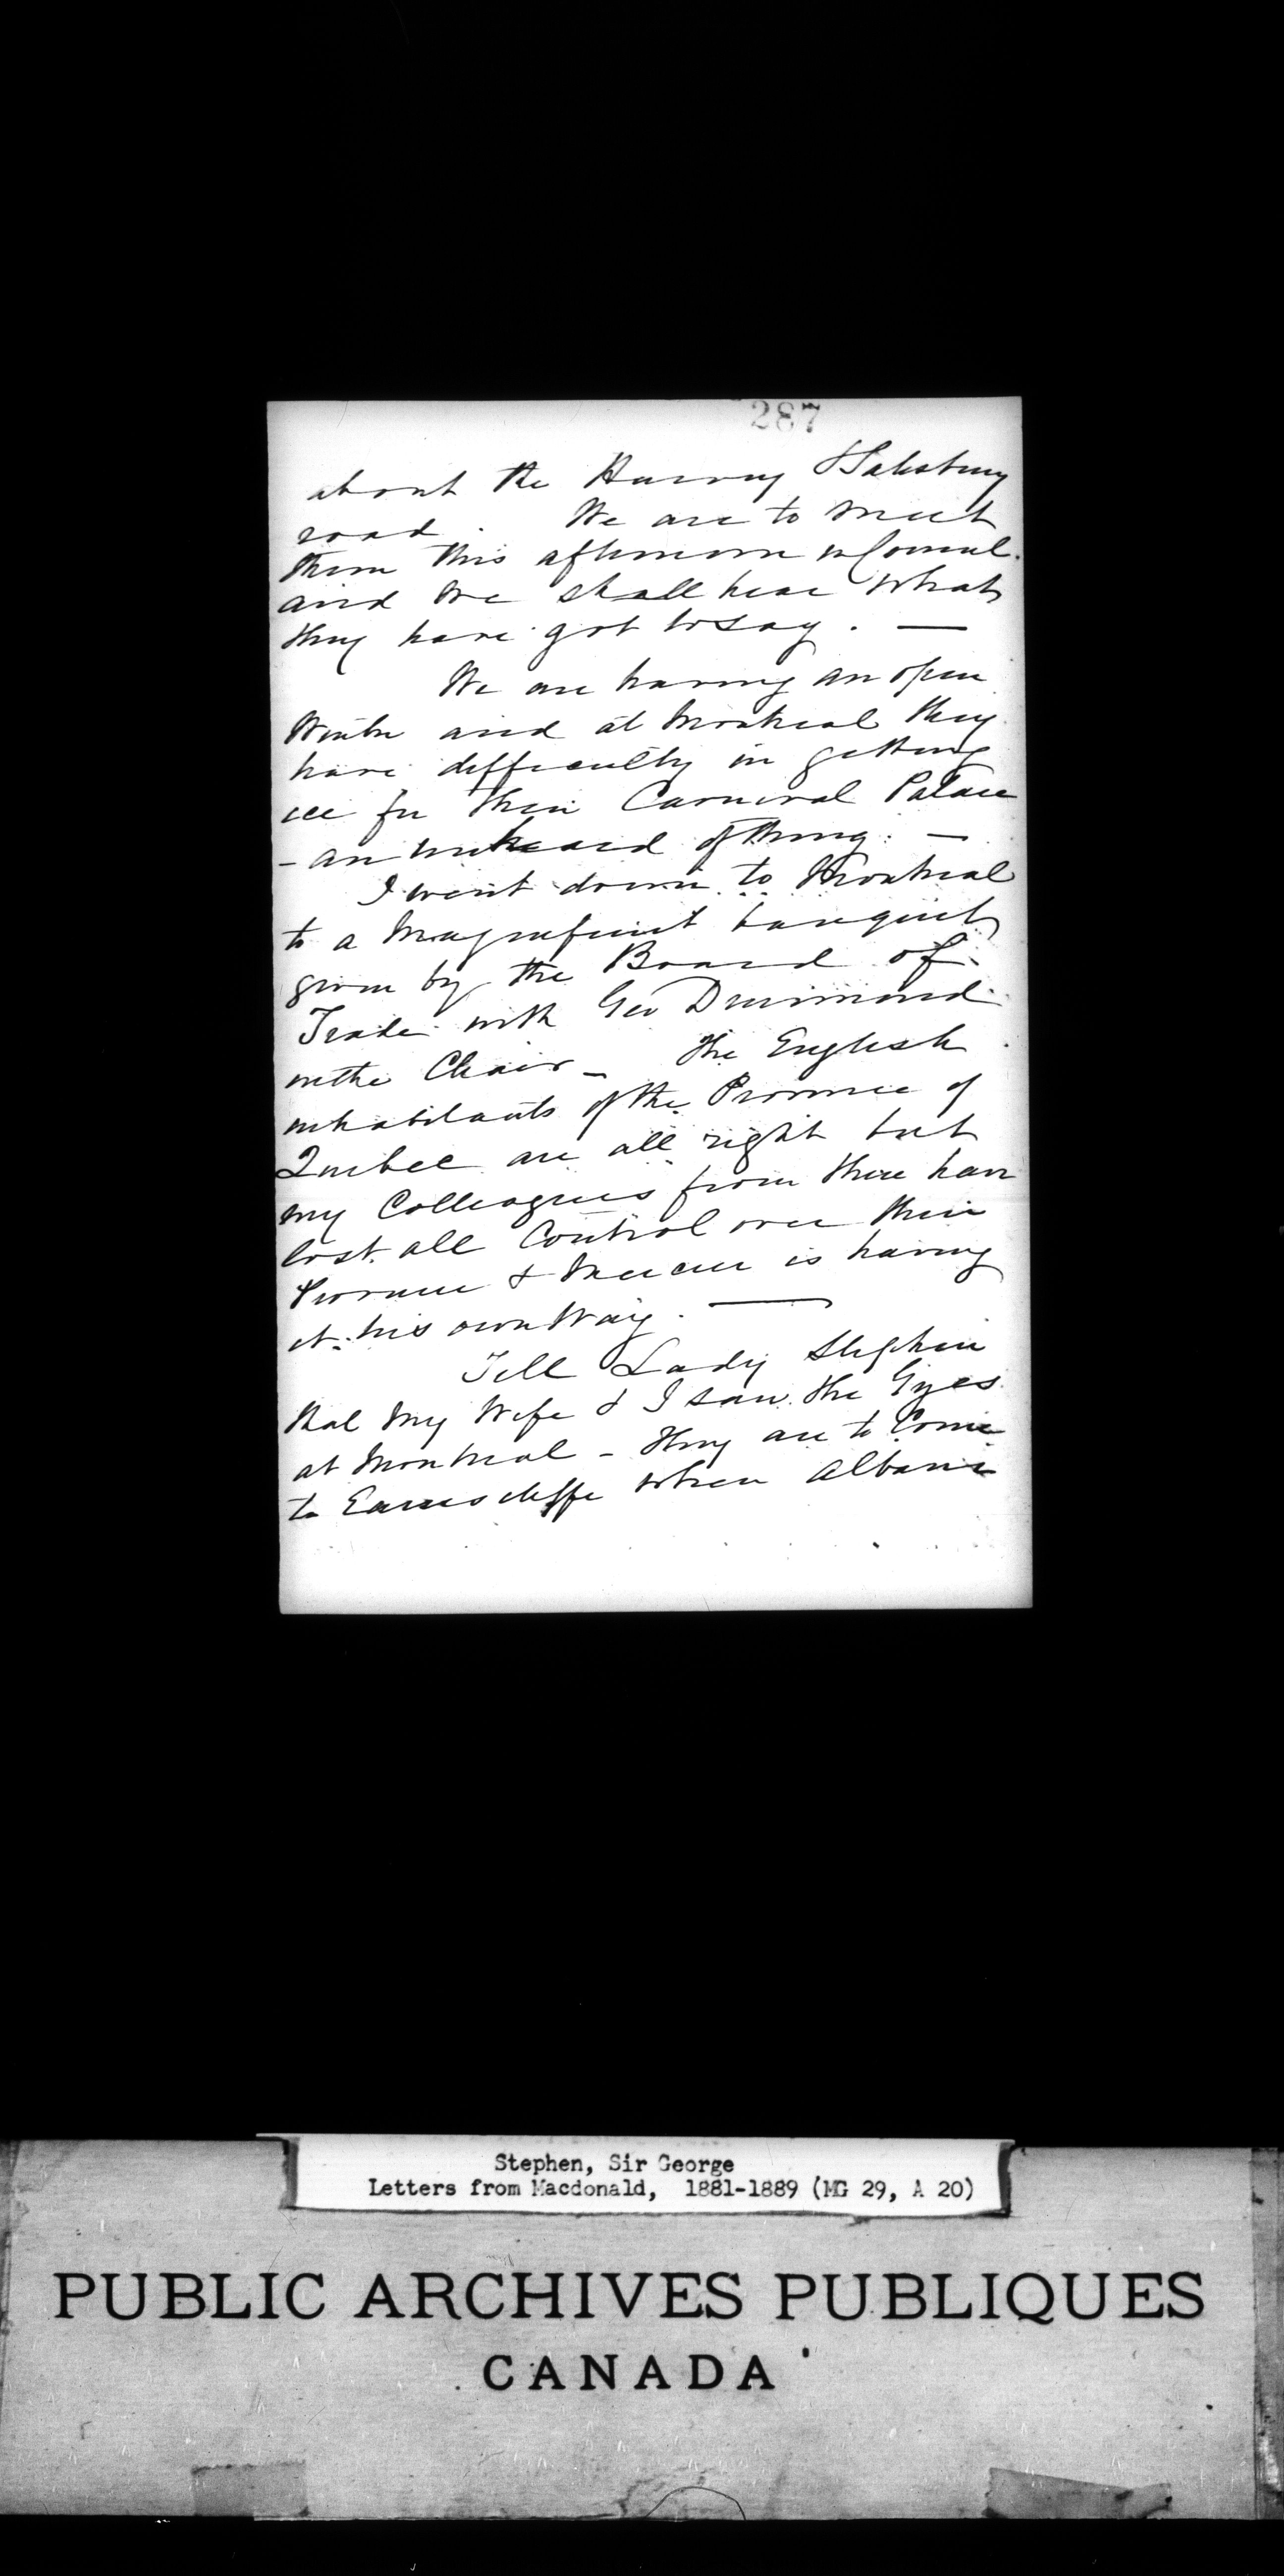 287
about the Harvey & Salisbury
road. We are to meet
them this afternoon in Council.
and we shall hear what
they have got to say. —
We are having an open
Winter and at Montreal they
have difficulty in getting
ice for their Carnival Palace
- an unheard of thing. —
I went down to Montreal
to a magnificent banquet
given by the Board of
Trade with Geo Drummond
in the Chair - The English
inhabitants of the Province of
Quebec are all right but
my Colleagues from there have
lost all Control over their
Province & Mercier is having
it his own Way. —
Tell Lady Stephen
that My Wife & I saw the Gyes
at Montreal - They are to Come
to Earnscliffe when Albani
Stephen, Sir George
Letters from Macdonald, 1881-1889 (MG 29, A 20)
PUBLIC ARCHIVES PUBLIQUES
CANADA